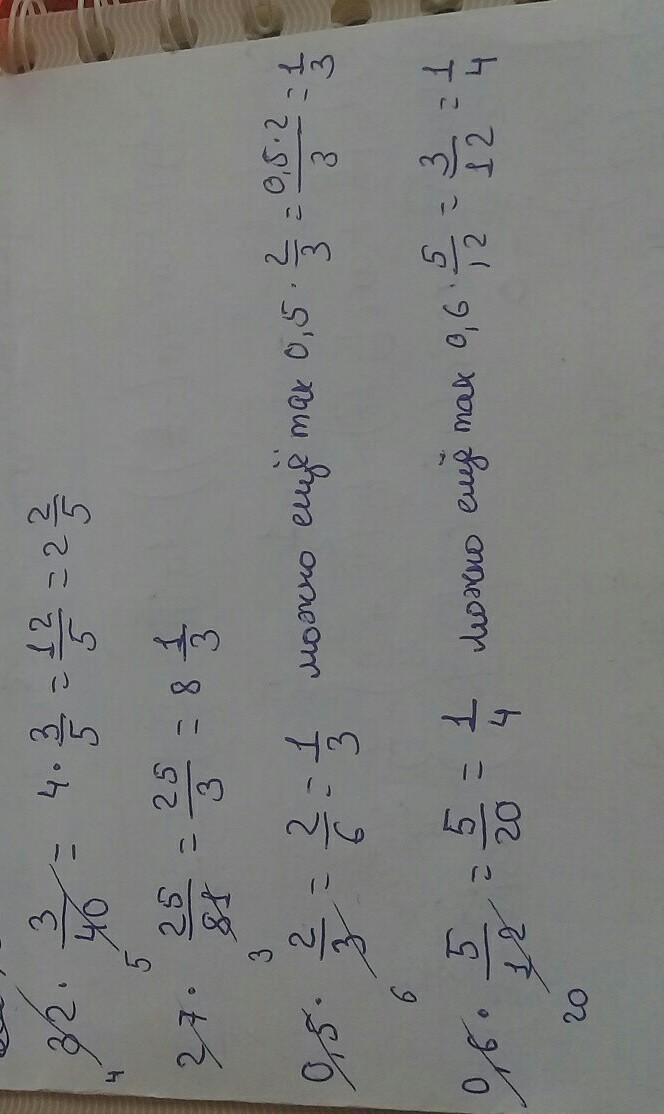 32 · 3/40 = 4 · 3/5 = 12/5 = 2 2/5
4 5
27 · 25/81 = 25/3 = 8 1/3
3
0,5 · 2/3 = 2/6 = 1/3 можно ещё так 0,5 · 2/3 = 0,5·2/3 = 1/3
6
0,6 · 5/12 = 5/20 = 1/4 можно ещё так 0,6 · 5/12 = 3/12 = 1/4
20